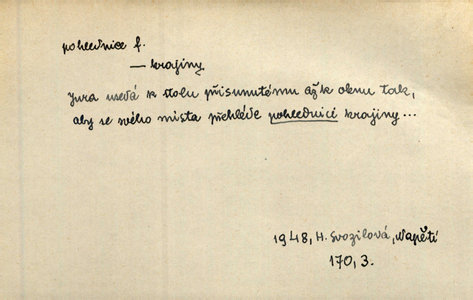 pohlednice f.
— krajiny
Jura usedá k stolu přisunutému až k oknu tak,
aby se svého místa přehlédl pohlednici krajiny...
1948, H. Svozilová, Napětí
170, 3.